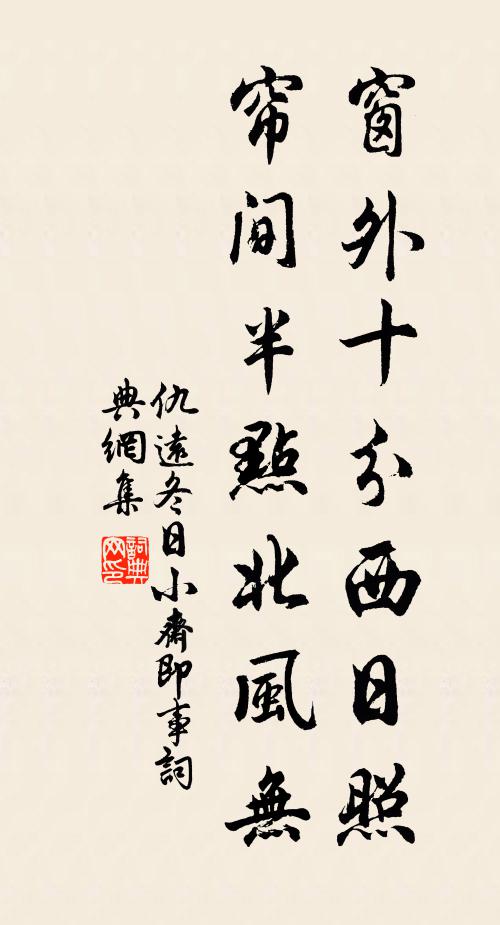 窗外十分西日照
帘间半點北風無
仇遠冬日小齋即事詞
典網集
詞典
网印